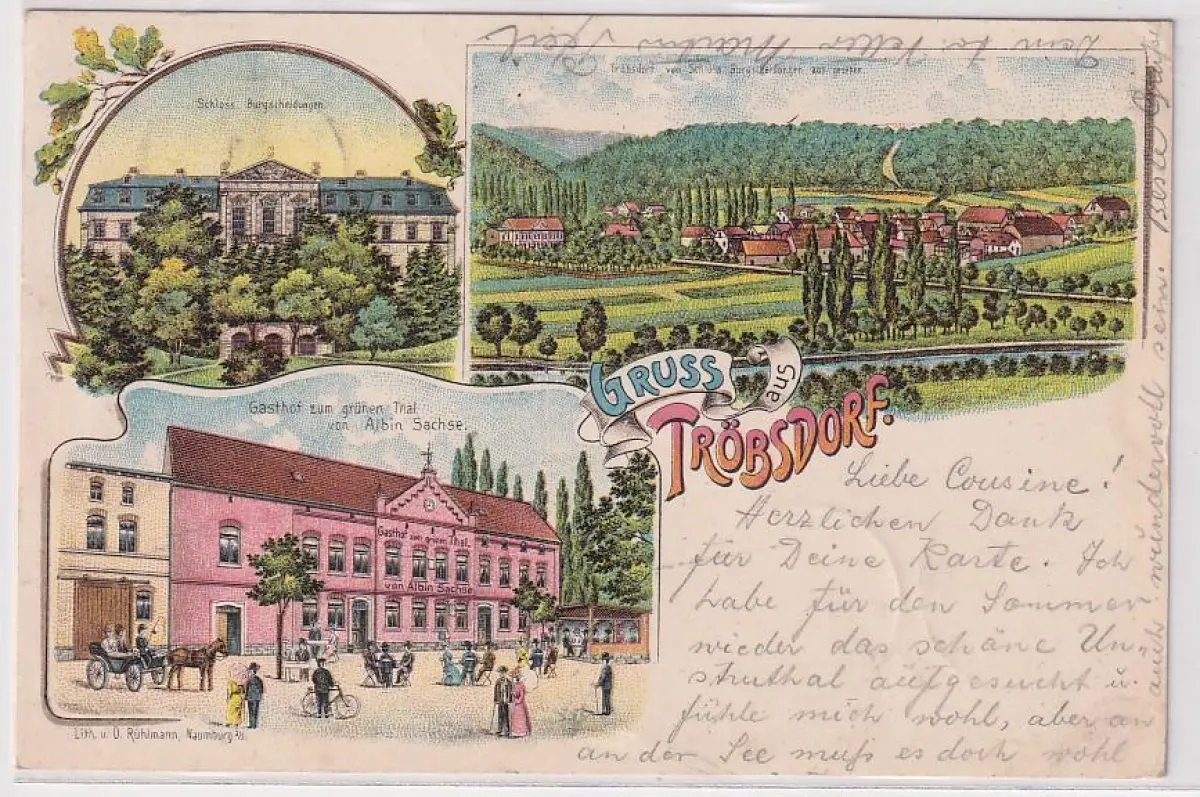 Schloss Burgscheidungen.
Tröbsdorf von Schloss Burgscheidungen aus gesehen.
Gasthof zum grünen Thal
von Albin Sachse.
Gasthof zum grünen Thal.
von Albin Sachse
GRUSS
aus
TRÖBSDORF.
Lith. u. D. Rühlmann, Naumburg a/S
Liebe Cousine!
Herzlichen Dank
für Deine Karte. Ich
habe für den Sommer
wieder das schöne Un-
struthal aufgesucht u.
fühle mich wohl, aber an
an der See muß es doch wohl
auch wundervoll sein. Beste Grüße
Dein